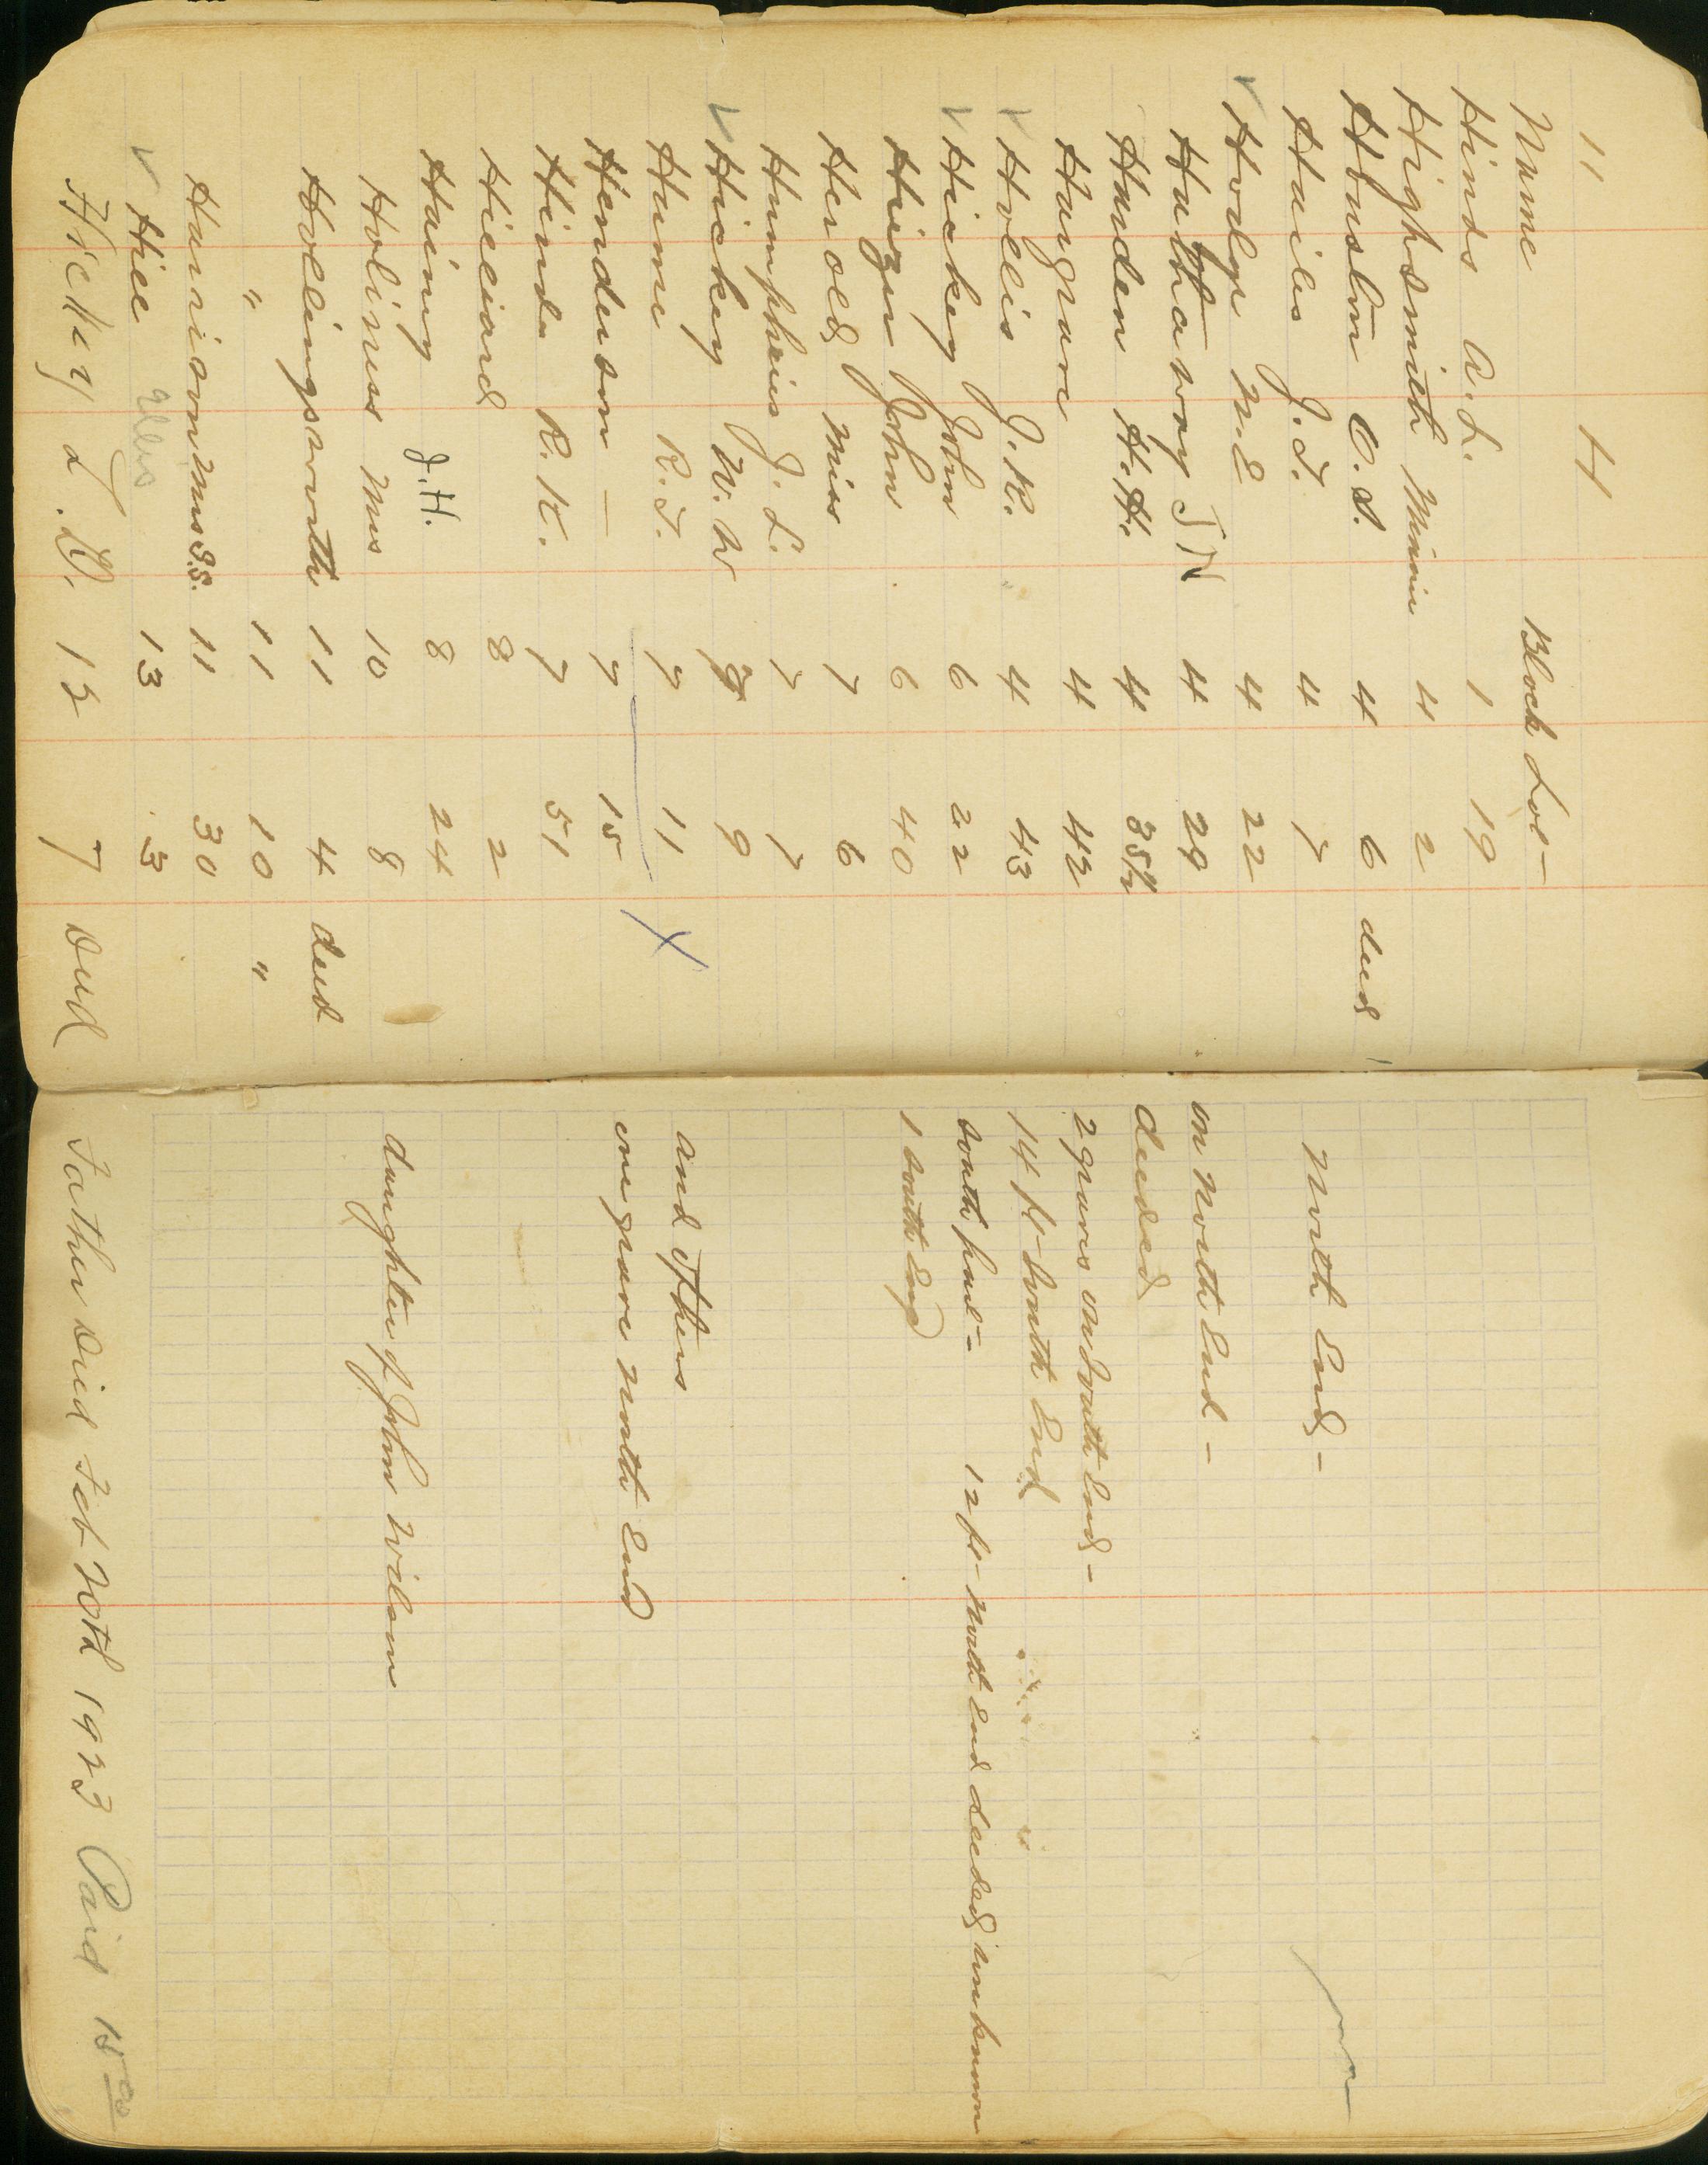 11 H
Name Block Lot
Hinds A. L. 1 19
Highsmith Minnie 4 2
Houston O. S. 4 6 deed
Hailes J. T. 4 7 North End -
✓ Hodge N. E 4 22
Hathaway J N 4 29 on North End -
Harden H. H. 4 35½ deeded
Haugrave 4 42 2 graves on South End -
✓ Hollis J. R. 4 43 14 ft South End
✓ Hickey John 6 22 South part - 12 ft North End deeded unknown
Higgin John 6 40 1 South End
Herold Miss 7 6
Humphries J. L. 7 7
✓ Hickey W. W 9
Hume R. T. 7 11 X and others
Henderson - 7 15 one grave North End
Hinds R. K. 7 51
Hilliard 8 2
Haing J. H. 8 24
Holines Mrs 10 8 daughter of John Wilson
Hollingsworth 11 4 deed
" 11 10 "
Harrison Mrs S. S. 11 30
✓ Hill 13 3
Hickey L. D. 13 7 Deed Father Died Feb 20th 1923 Paid 15 00